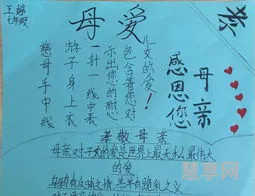 王婷
七年级
母爱
亲
慈母手中线
游子身上衣
一针一线中表
示出您的耐心
包含着您对
儿女的爱!
感恩您
母亲
孝敬母亲
母亲对子女的爱是世界上最无私最伟大
的爱
慧享网